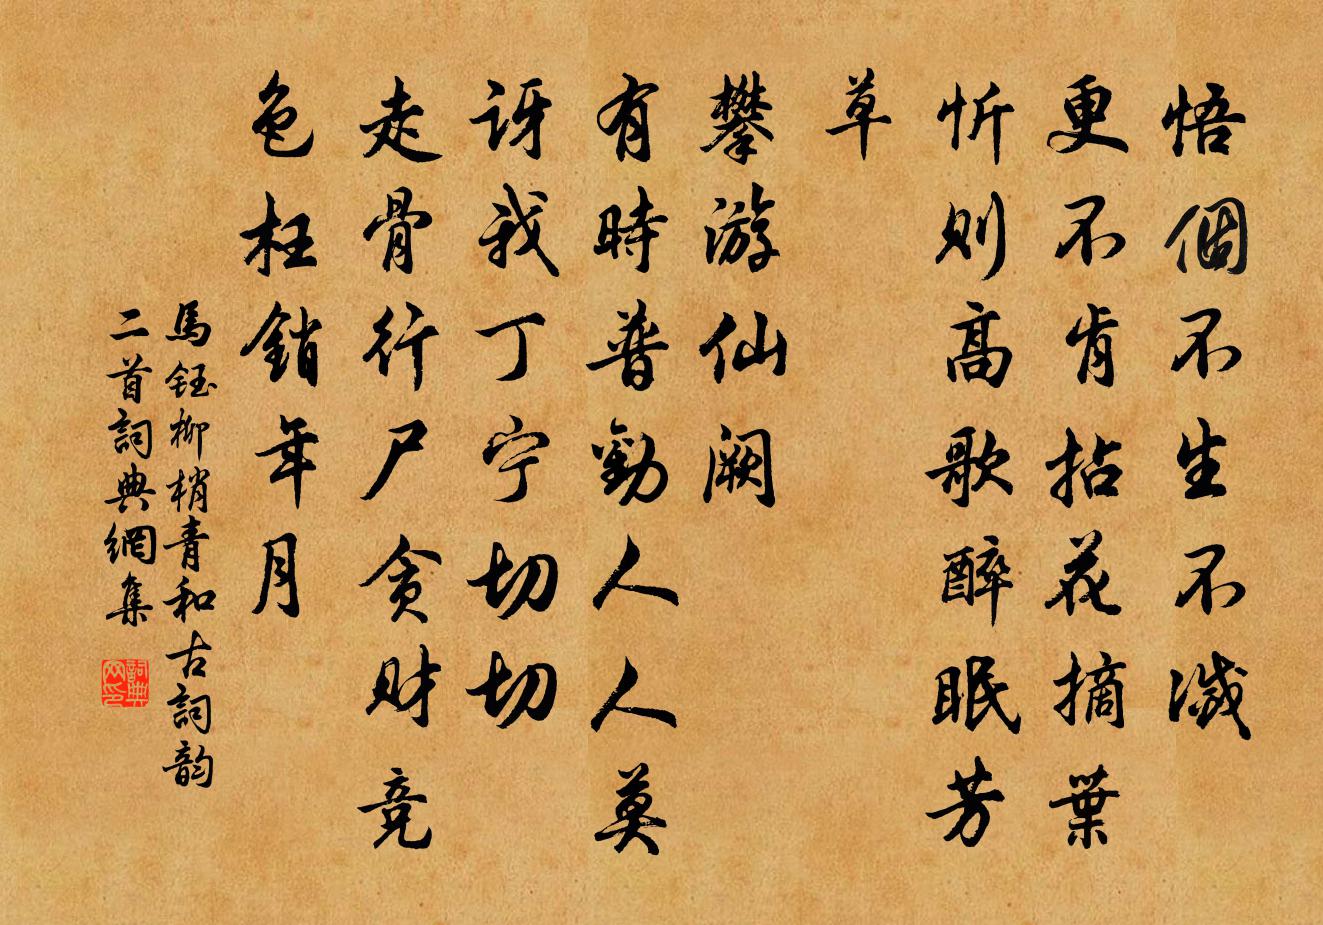 悟個不生不滅
更不肯拈花摘葉
忻则高歌醉眠芳
草
攀游仙阙
有時普勸人人莫
訝我丁宁切切
走骨行尸贪财竞
色枉銷年月
馬鈺柳梢青和古詞韵
二首詞典網集
詞典
网印